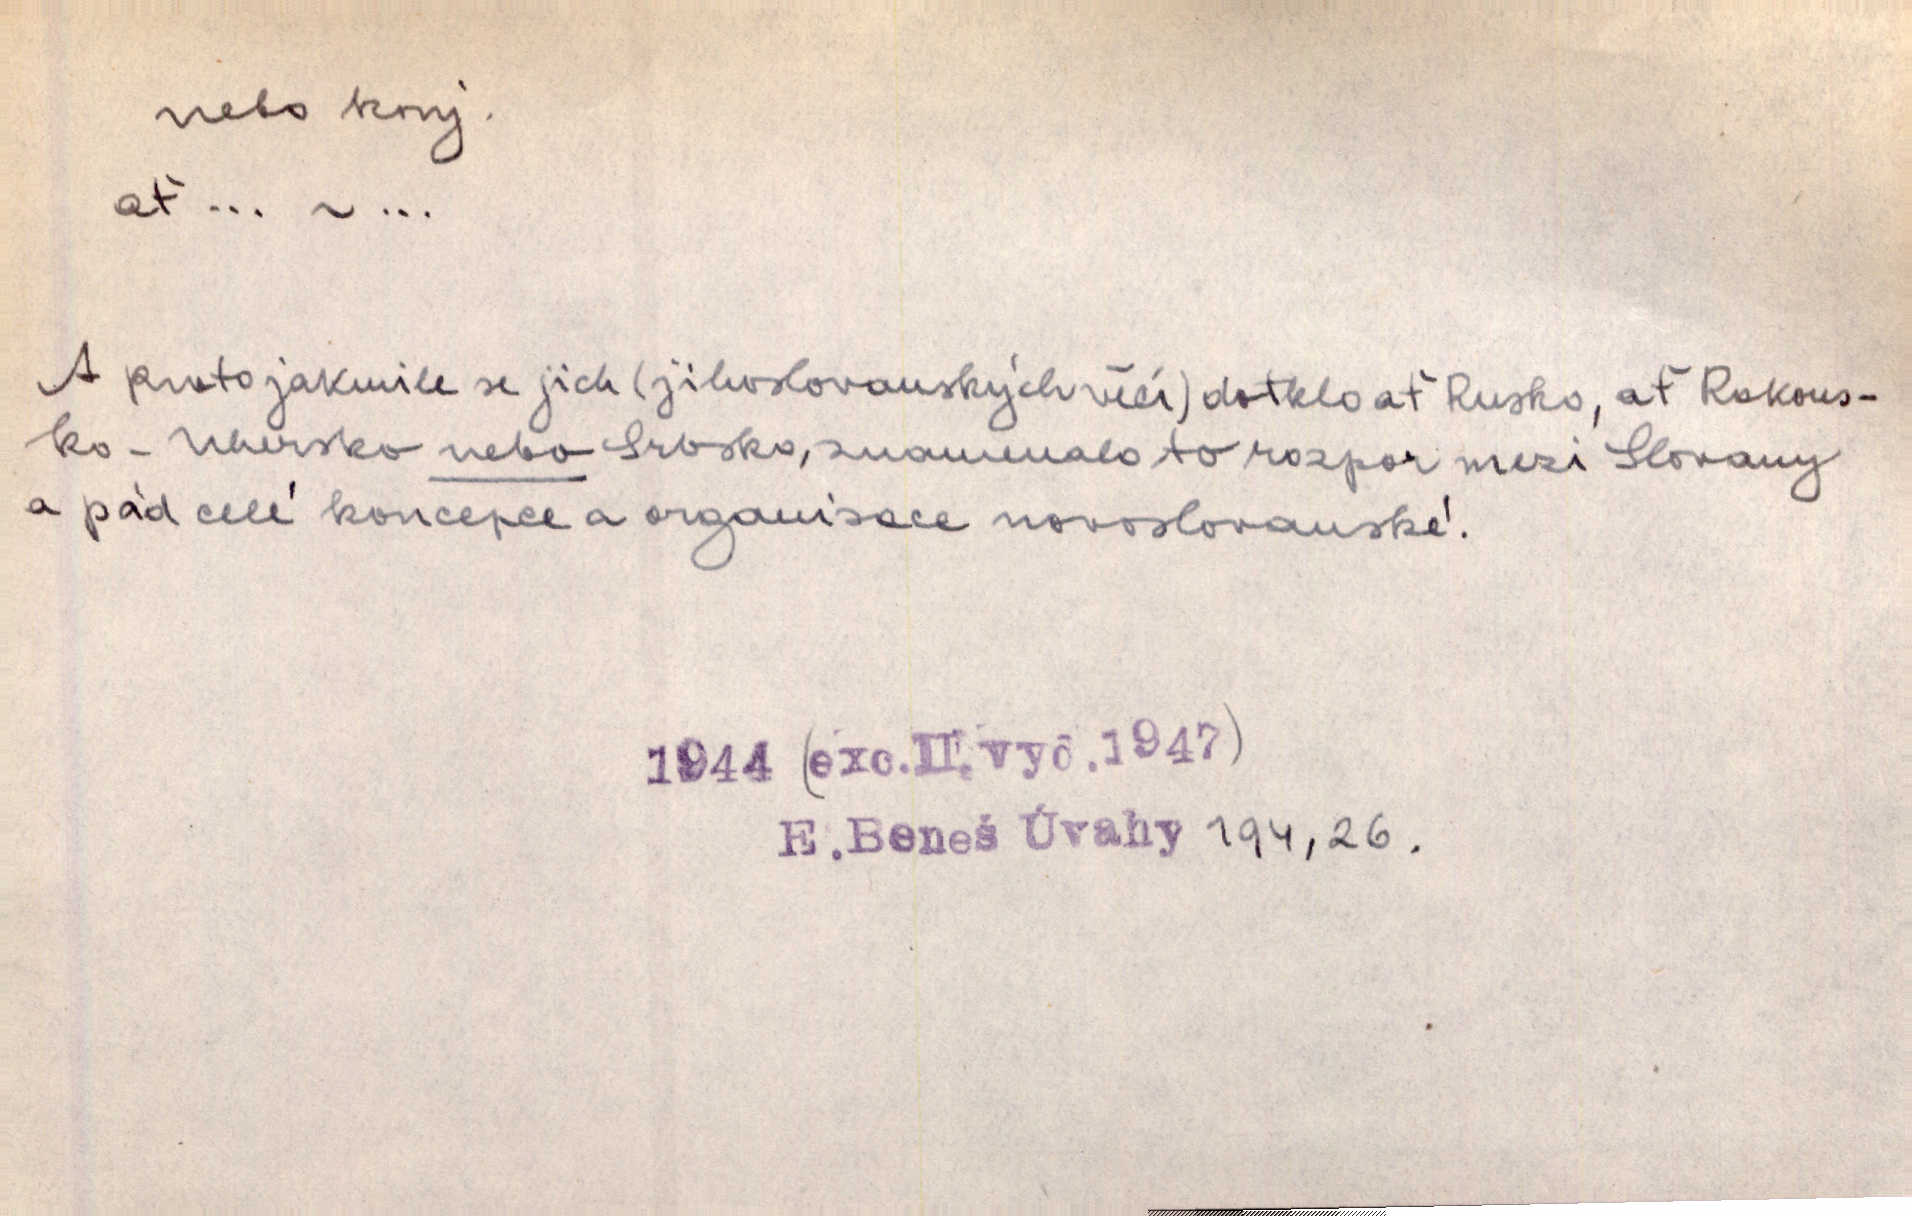 nebo konj.
ať ... ~ ...
A proto jakmile se jich (jihoslovanských věcí) dotklo ať Rusko, ať Rakous-
ko - Uhersko nebo Srbsko, znamenalo to rozpor mezi Slovany
a pád celé koncepce a organisace novoslovanské.
1944 (exc. II. vyd. 1947)
E. Beneš Úvahy 194, 26.